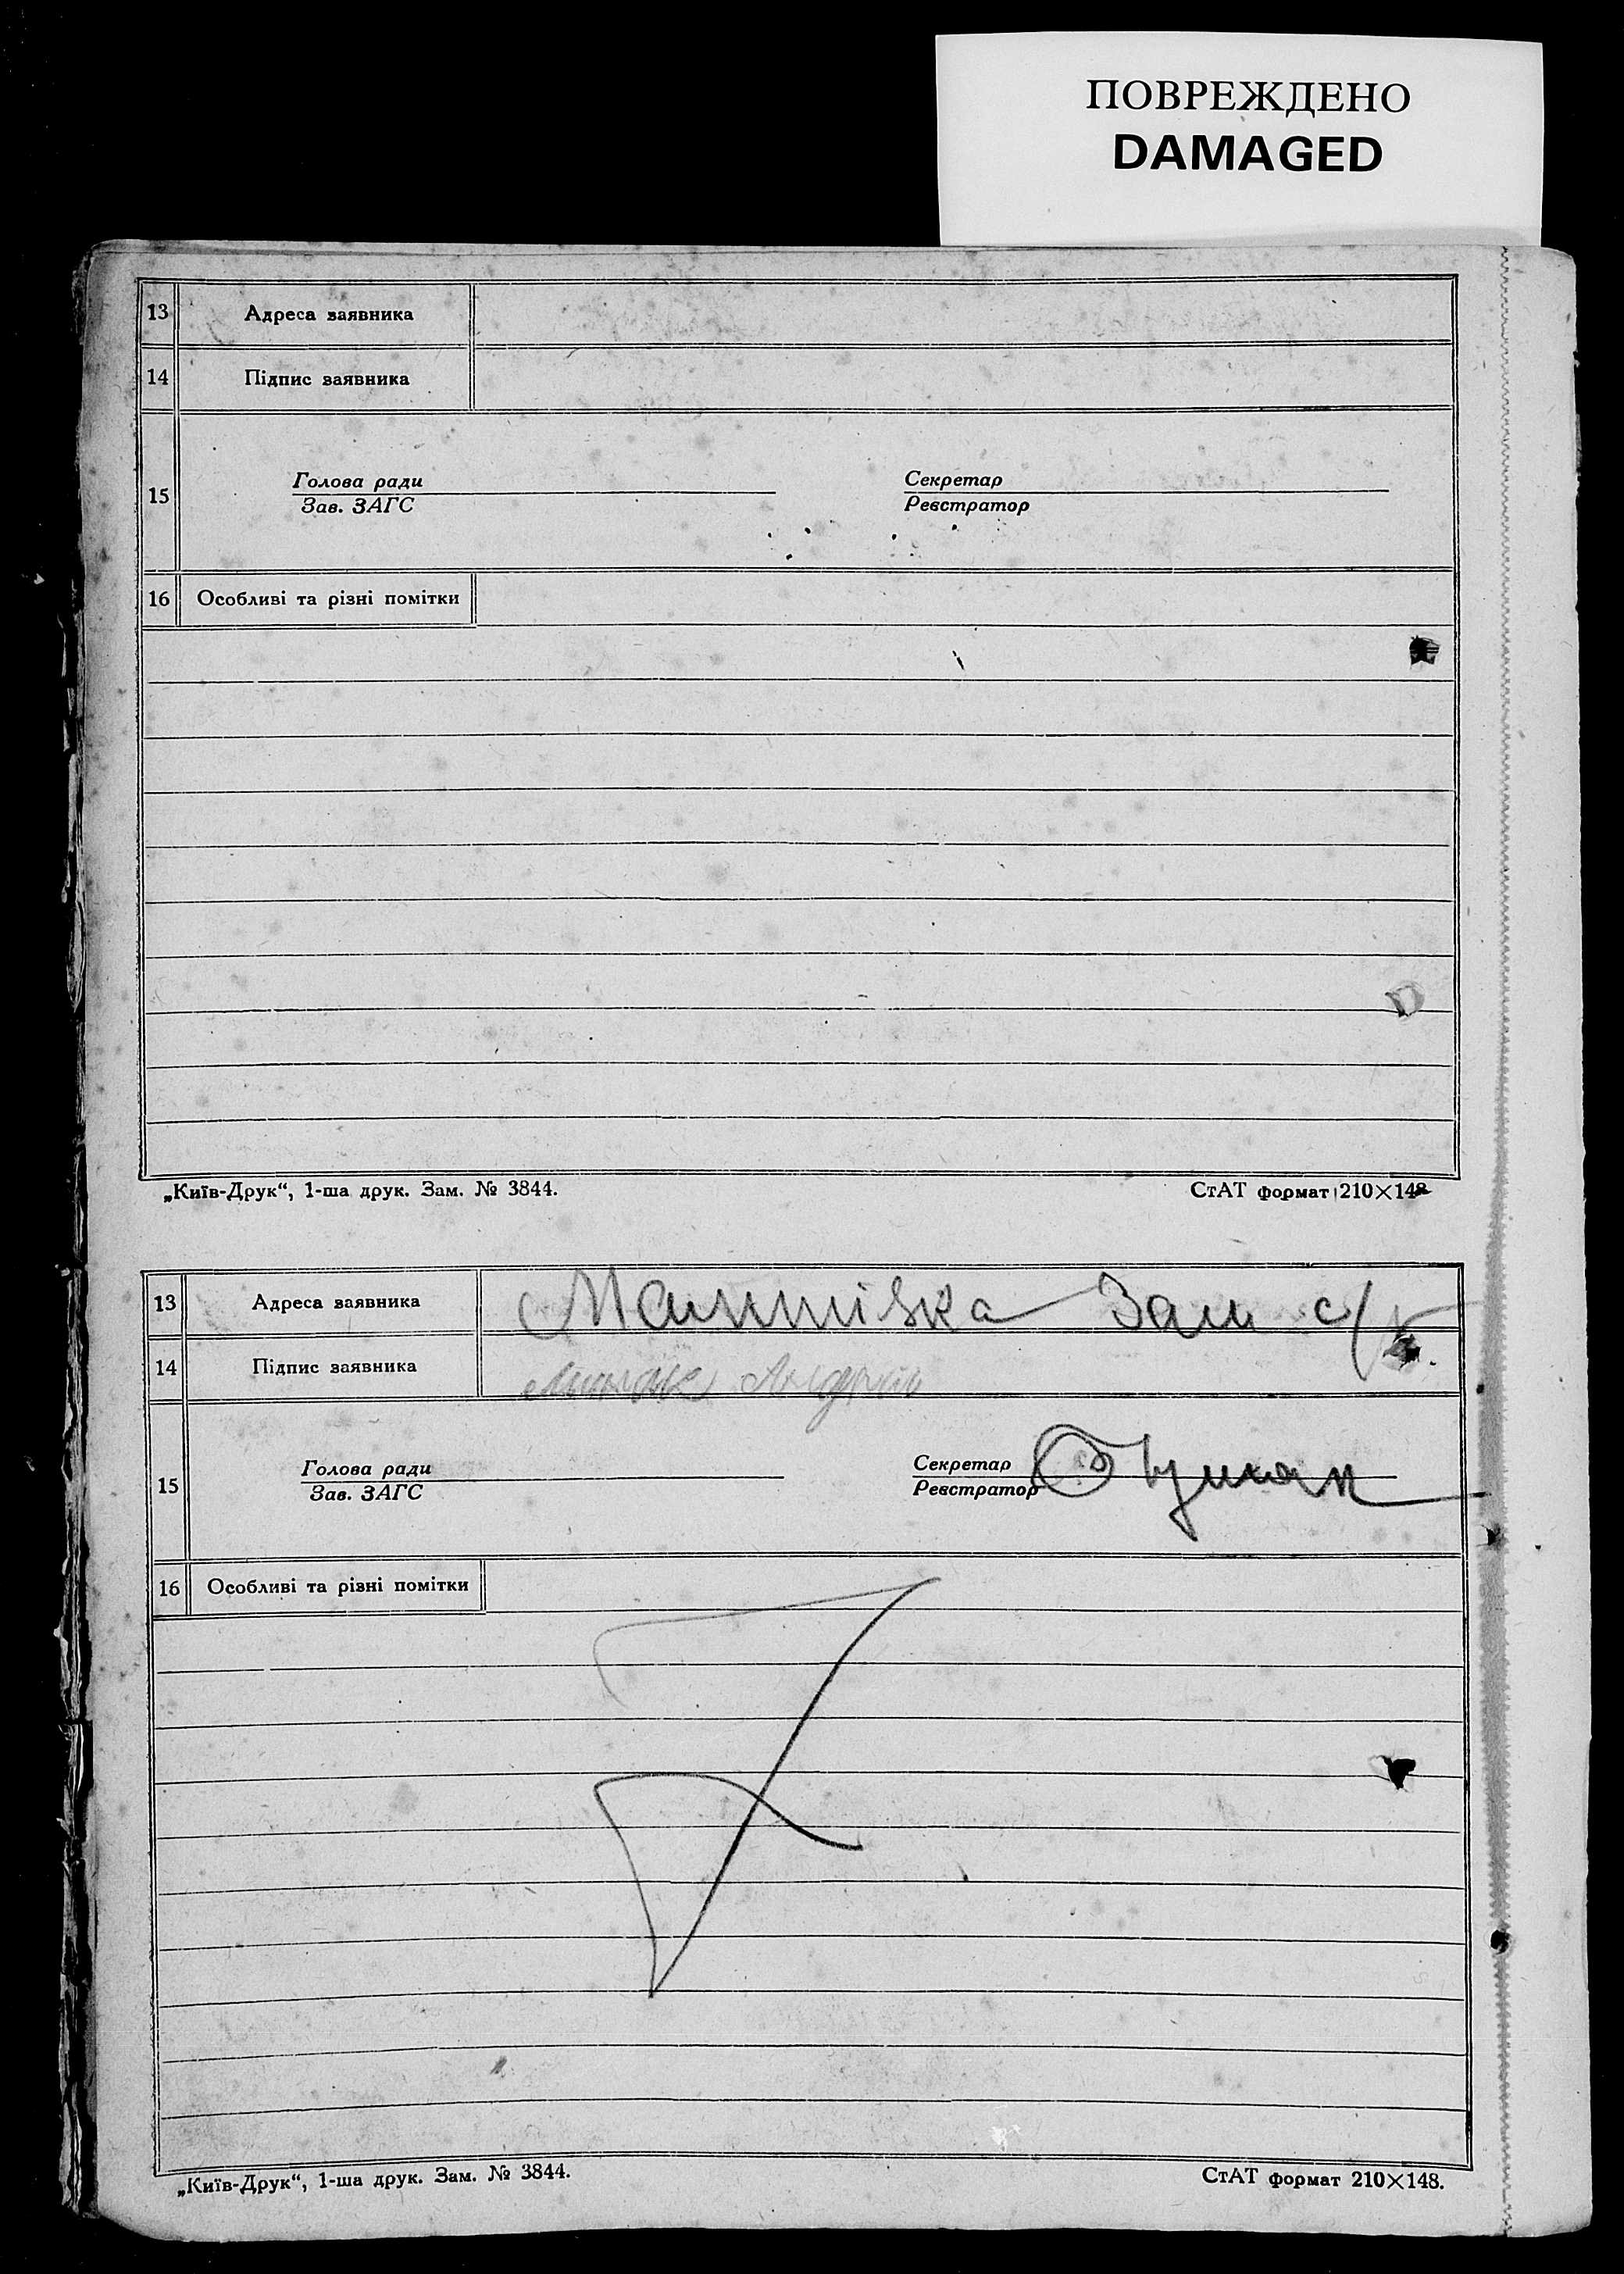 ПОВРЕЖДЕНО
DAMAGED
13 Адреса заявника
14 Підпис заявника
Голова ради Секретар
15
Зав. ЗАГС Реєстратор
16 Особливі та різні помітки
„Київ-Друк“, 1-ша друк. Зам. № 3844. СтАТ формат 210×148
13 Адреса заявника
14 Підпис заявника
Голова ради Секретар
15
Зав. ЗАГС Реєстратор
16 Особливі та різні помітки
„Київ-Друк“, 1-ша друк. Зам. № 3844. СтАТ формат 210×148.